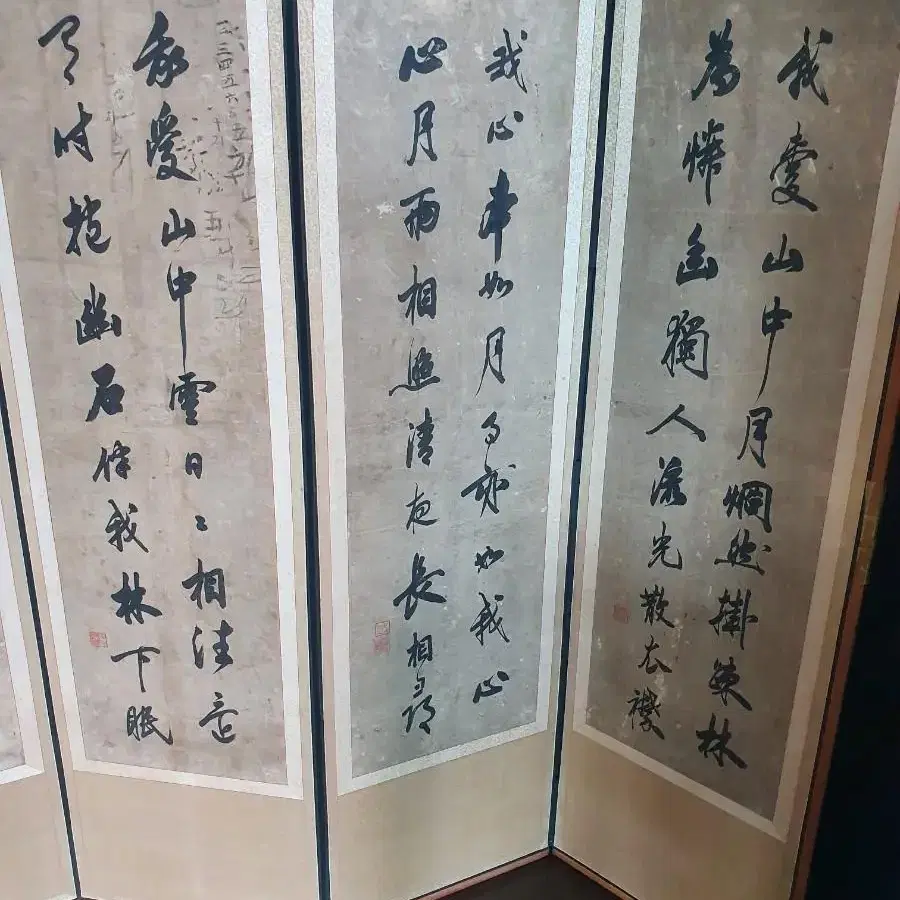 我愛山中月烱然掛疎林
為憐幽獨人流光散衣襟
我心本如月月亦如我心
心月兩相照清夜長相尋
我愛山中雲日〻相往還
有時抱幽石伴我林下眠